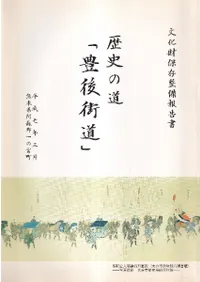 文化財保存整備報告書
歴史の道
「豊後街道」
平成七年三月
熊本県阿蘇郡一の宮町